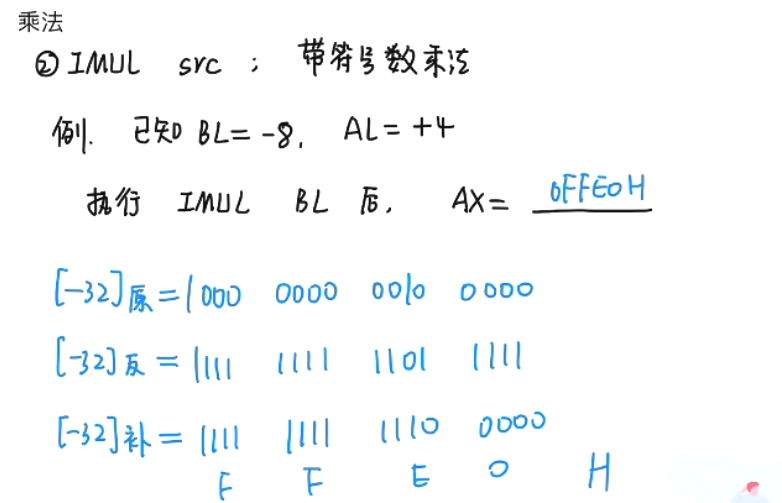 乘法
② IMUL src ; 带符号数乘法
例. 已知 BL= -8, AL= +4
执行 IMUL BL 后, AX= 0FFE0H
[-32]原 = 1000 0000 0010 0000
[-32]反 = 1111 1111 1101 1111
[-32]补 = 1111 1111 1110 0000
F F E 0 H